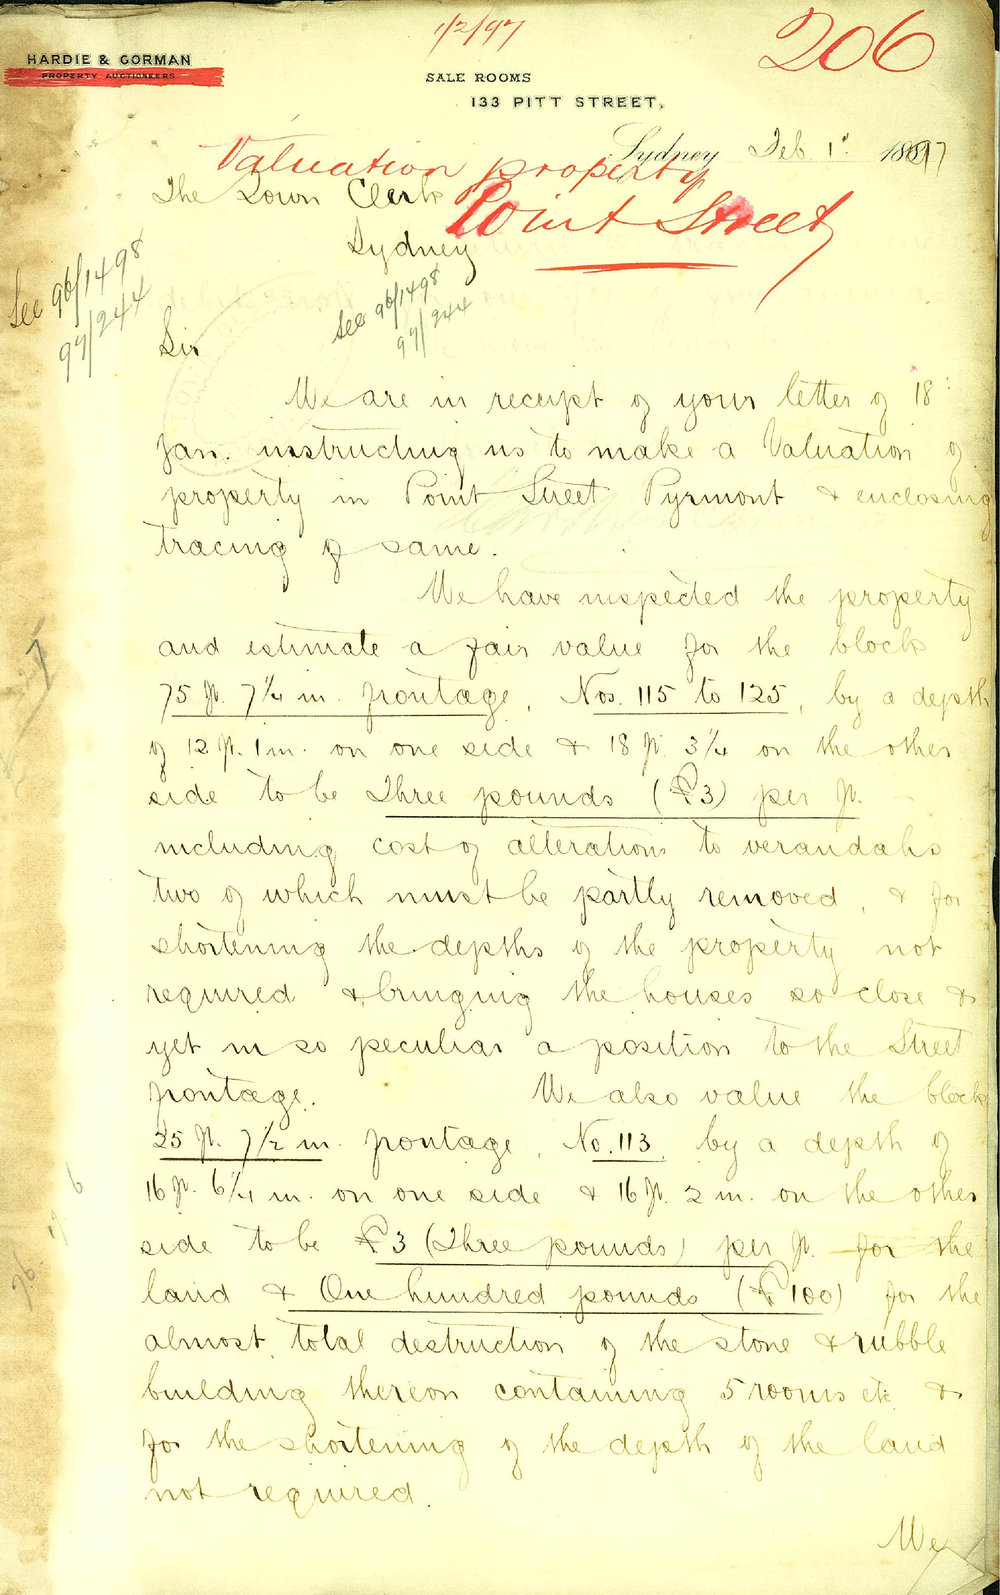 1/2/97
206
HARDIE & GORMAN
PROPERTY AUCTIONEERS
SALE ROOMS
133 PITT STREET,
Sydney Feb. 1st 1897
Valuation property
Point Street
The Town Clerk
Sydney
See 96/1498
97/244
See 96/1498
97/244
Sir
We are in receipt of your letter of 18th
Jan. instructing us to make a Valuation of
property in Point Street Pyrmont & enclosing
tracing of same.
We have inspected the property
and estimate a fair value for the block
75 ft. 7¼ in. frontage, Nos. 115 to 125, by a depth
of 12 ft. 1 in. on one side & 18 ft. 3¼ on the other
side to be Three pounds (£3) per ft.
including cost of alterations to verandahs
two of which must be partly removed, & for
shortening the depths of the property not
required & bringing the houses so close &
yet in so peculiar a position to the Street
frontage. We also value the block
25 ft. 7½ in. frontage, No. 113, by a depth of
16 ft. 6¼ in. on one side & 16 ft. 2 in. on the other
side to be £3 (Three pounds) per ft. for the
land & One hundred pounds (£100) for the
almost total destruction of the stone & rubble
building thereon containing 5 rooms etc &
for the shortening of the depth of the land
not required.
We